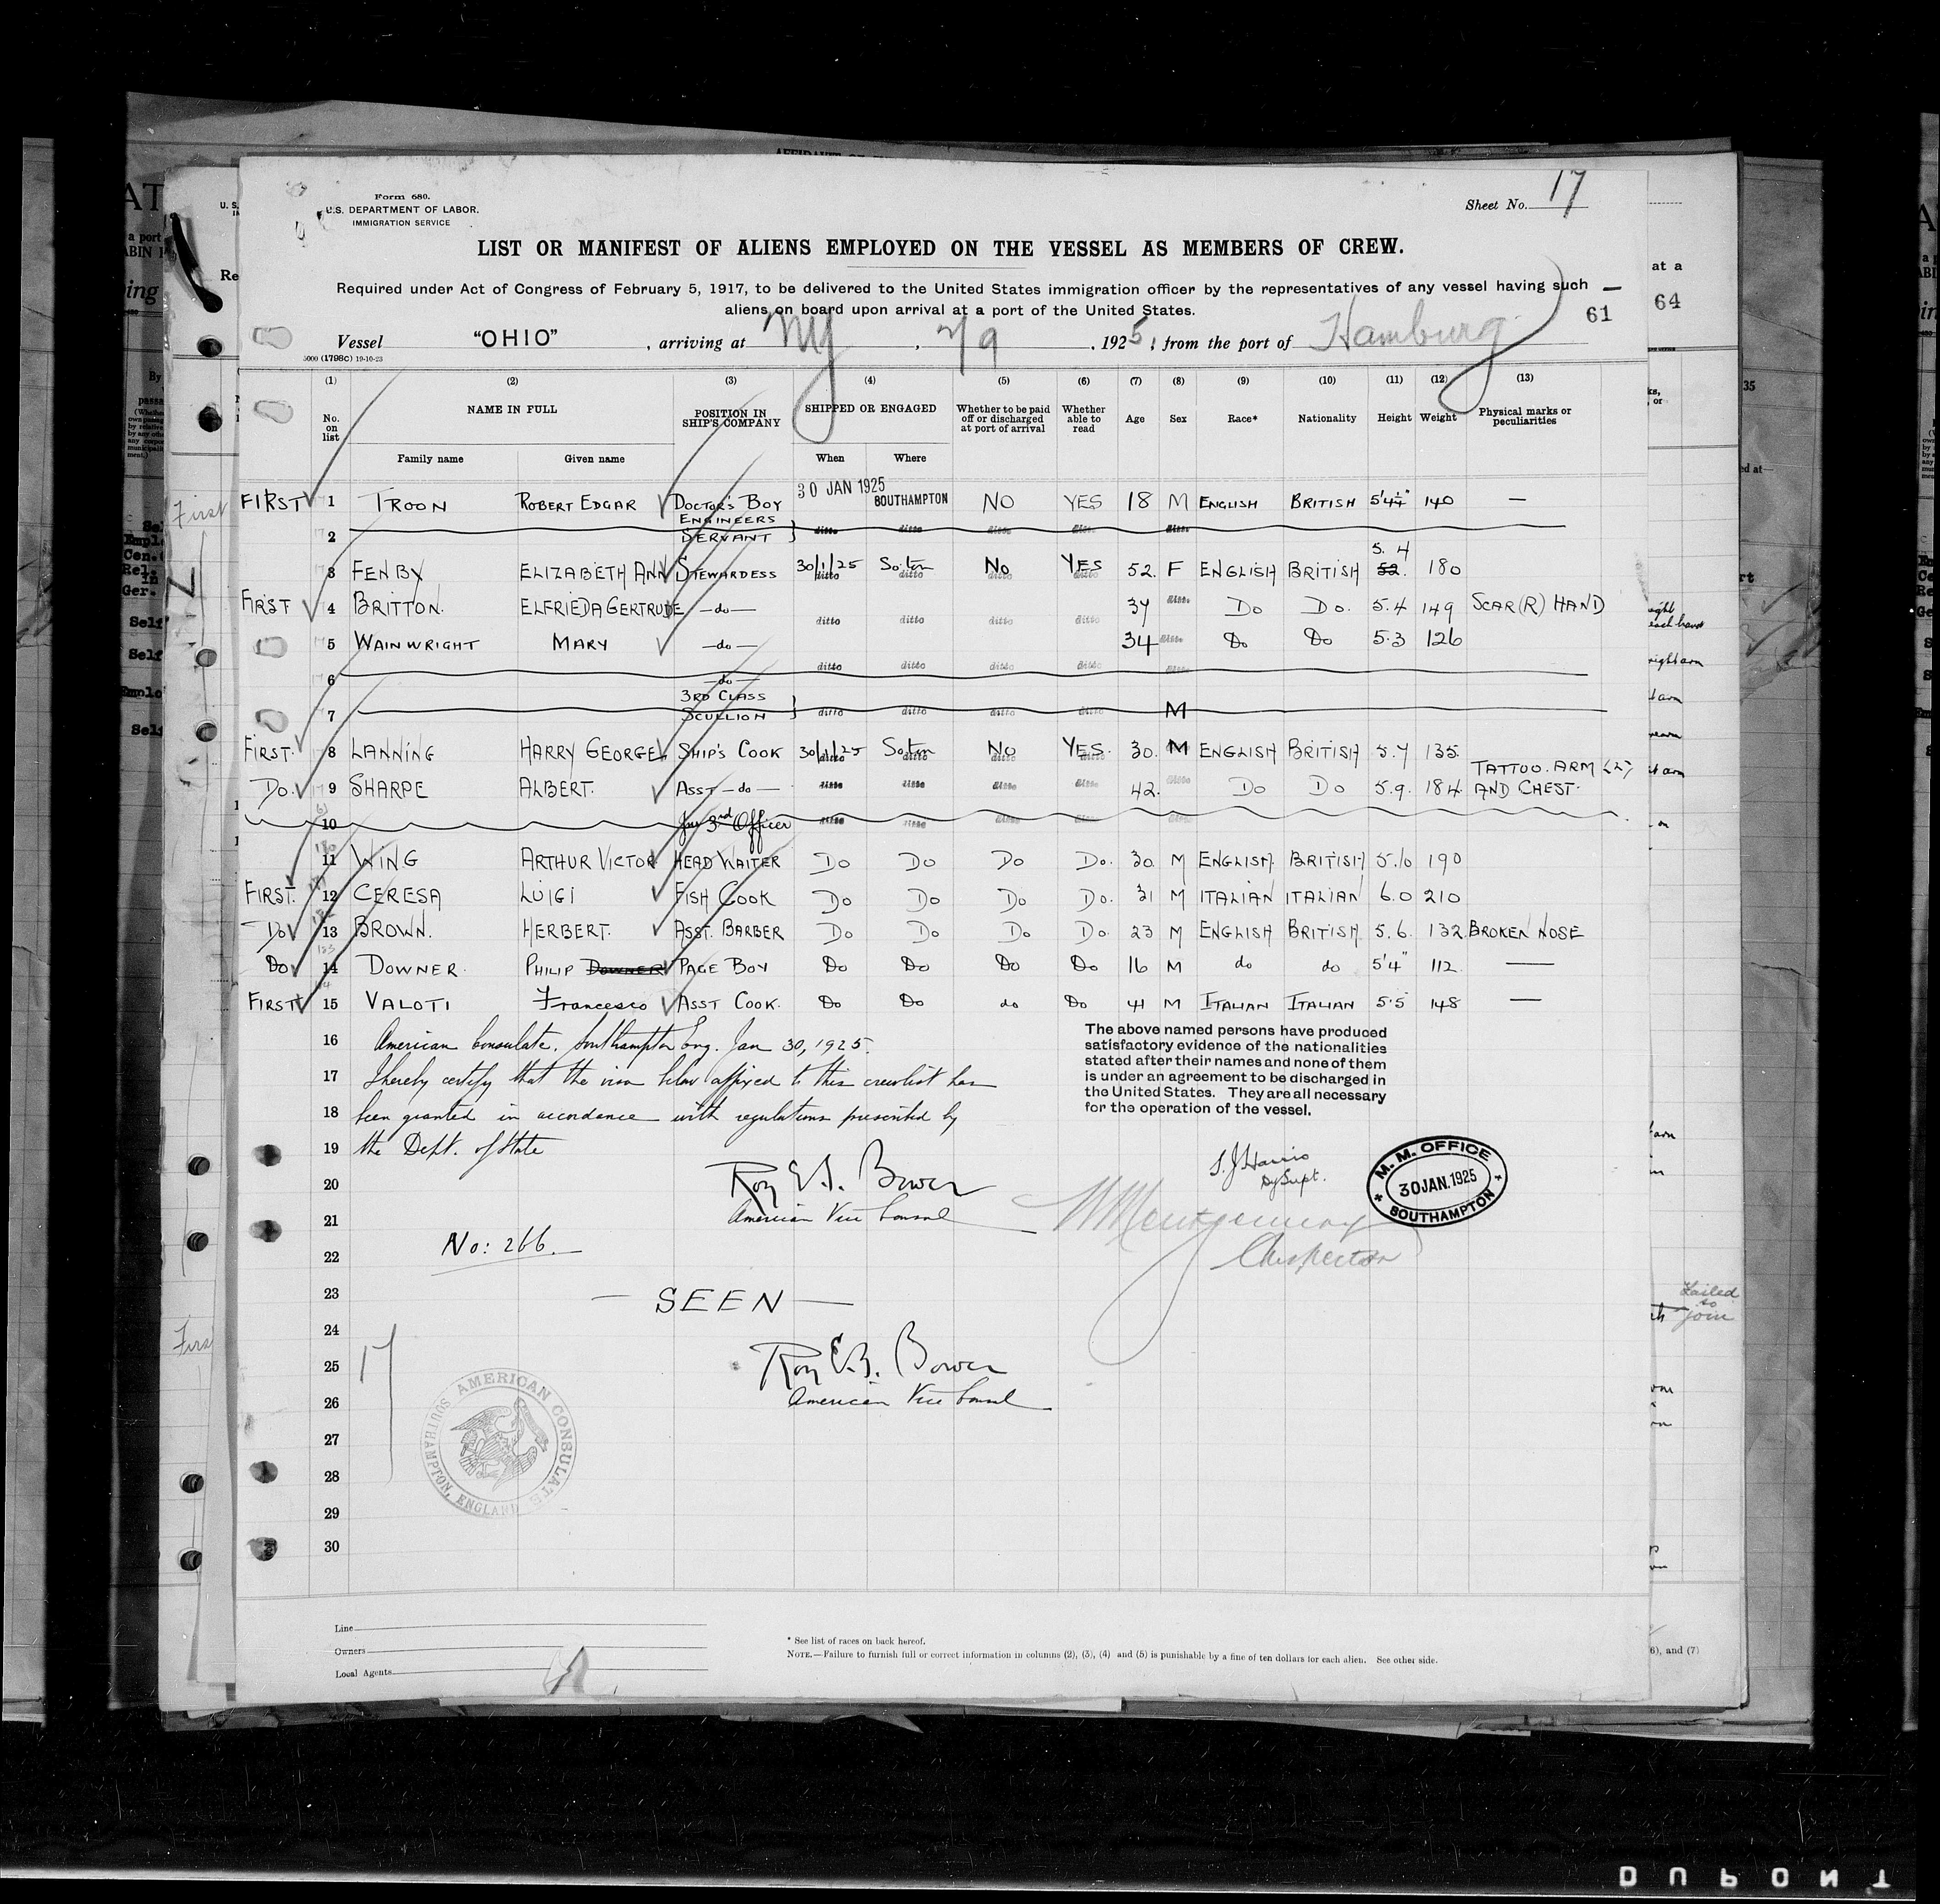 Form 680.
U.S. DEPARTMENT OF LABOR.
IMMIGRATION SERVICE
Sheet No. 17
LIST OR MANIFEST OF ALIENS EMPLOYED ON THE VESSEL AS MEMBERS OF CREW.
Required under Act of Congress of February 5, 1917, to be delivered to the United States immigration officer by the representatives of any vessel having such
aliens on board upon arrival at a port of the United States.
61
64
at a
Vessel "OHIO", arriving at NY, 2/9, 1925, from the port of Hamburg
5000 (1798C) 19-10-23
(1) (2) (3) (4) (5) (6) (7) (8) (9) (10) (11) (12) (13)
No. on list NAME IN FULL POSITION IN SHIP'S COMPANY SHIPPED OR ENGAGED Whether to be paid off or discharged at port of arrival Whether able to read Age Sex Race* Nationality Height Weight Physical marks or peculiarities
Family name Given name When Where
FIRST 1 TROON ROBERT EDGAR DOCTOR'S BOY 30 JAN 1925 SOUTHAMPTON NO YES 18 M ENGLISH BRITISH 5'4½" 140 —
2 ENGINEERS SERVANT ditto ditto ditto ditto ditto
3 FENBY ELIZABETH ANN STEWARDESS 30/1/25 So.ton No YES 52. F ENGLISH BRITISH 5. 4 180
FIRST 4 BRITTON. ELFRIEDA GERTRUDE —do— ditto ditto ditto ditto 37 ditto Do Do. 5.4 149 SCAR (R) HAND
5 WAINWRIGHT MARY —do— ditto ditto ditto ditto 34 ditto Do Do 5.3 126
6 —do— ditto ditto ditto ditto ditto
7 3RD CLASS SCULLION ditto ditto ditto ditto M
FIRST. 8 LANNING HARRY GEORGE SHIP'S COOK 30/1/25 So.ton No YES. 30. M ENGLISH BRITISH 5.7 135
DO. 9 SHARPE ALBERT. ASST —do— ditto ditto ditto ditto 42. ditto Do Do 5.9. 184 TATTOO. ARM (L) AND CHEST.
10 Jnr 3rd Officer ditto ditto ditto ditto ditto
11 WING ARTHUR VICTOR HEAD WAITER Do Do Do Do. 30 M ENGLISH BRITISH 5.10 190
FIRST. 12 CERESA LUIGI FISH COOK Do Do Do Do. 31 M ITALIAN ITALIAN 6.0 210
Do 13 BROWN. HERBERT. ASST. BARBER Do Do Do Do. 23 M ENGLISH BRITISH 5.6. 132 BROKEN NOSE
Do 14 DOWNER. PHILIP DOWNER PAGE BOY Do Do Do Do 16 M do do 5'4" 112 —
FIRST 15 VALOTI Francesco ASST COOK. Do Do do Do 41 M ITALIAN ITALIAN 5.5 148 —
16 American Consulate, Southampton Eng. Jan 30, 1925.
17 I hereby certify that the visa below affixed to this crewlist has
18 been granted in accordance with regulations prescribed by
19 the Dept. of State
The above named persons have produced
satisfactory evidence of the nationalities
stated after their names and none of them
is under an agreement to be discharged in
the United States. They are all necessary
for the operation of the vessel.
20 Roy E.B. Bower
21 American Vice Consul
S. J. Harris
Dy Supt.
M. M. OFFICE
30 JAN. 1925
SOUTHAMPTON
W Montgomery
Inspector
22 No: 266.
23 — SEEN —
24
25 Roy E.B. Bower
26 American Vice Consul
17
AMERICAN CONSULATE
SOUTHAMPTON, ENGLAND
27
28
29
30
Failed to join
Line
Owners
Local Agents
* See list of races on back hereof.
NOTE.—Failure to furnish full or correct information in columns (2), (3), (4) and (5) is punishable by a fine of ten dollars for each alien. See other side.
6), and (7)
DUPONT